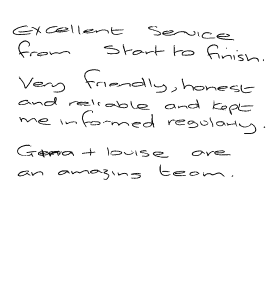 Excellent Service
from Start to finish.
Very friendly, honest
and reliable and kept
me informed regularly.
+ louise are
an amazing team.